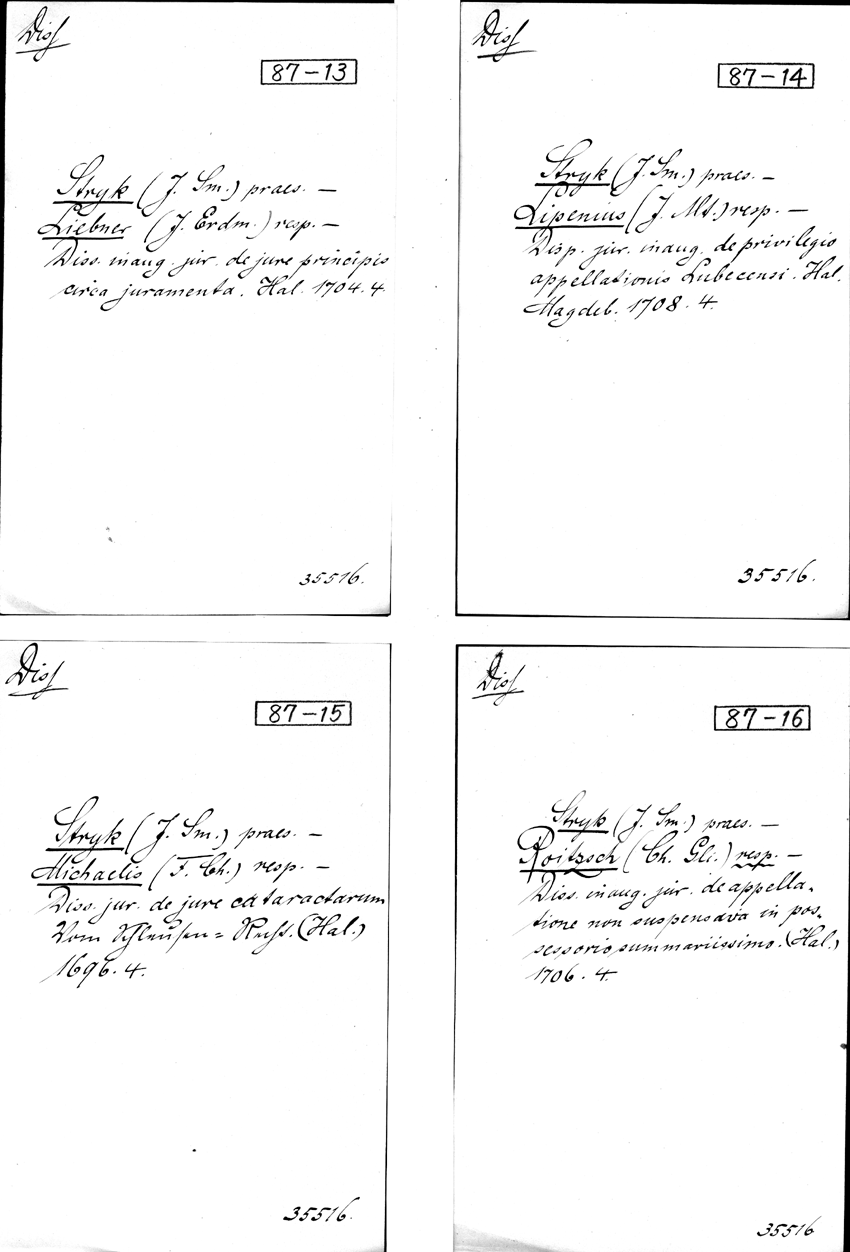 Diss
87-13
Stryk (J. Sm.) praes. —
Liebner (J. Erdm.) resp. —
Diss. inaug. jur. de jure principis
circa juramenta. Hal. 1704. 4.
35516.
Diss
87-14
Stryk (J. Sm.) praes. —
Lipenius (J. Mt.) resp. —
Disp. jur. inaug. de privilegio
appellationis Lubecensi. Hal.
Magdeb. 1708. 4.
35516.
Diss
87-15
Stryk (J. Sm.) praes. —
Michaelis (F. Ch.) resp. —
Diss. jur. de jure cataractarum
Vom Schleusen= Recht. (Hal.)
1696. 4.
35516.
Diss
87-16
Stryk (J. Sm.) praes. —
Roitzsch (Ch. Gli.) resp. —
Diss. inaug. jur. de appella-
tione non suspensava in pos-
sessorio summariissimo. (Hal.)
1706. 4.
35516